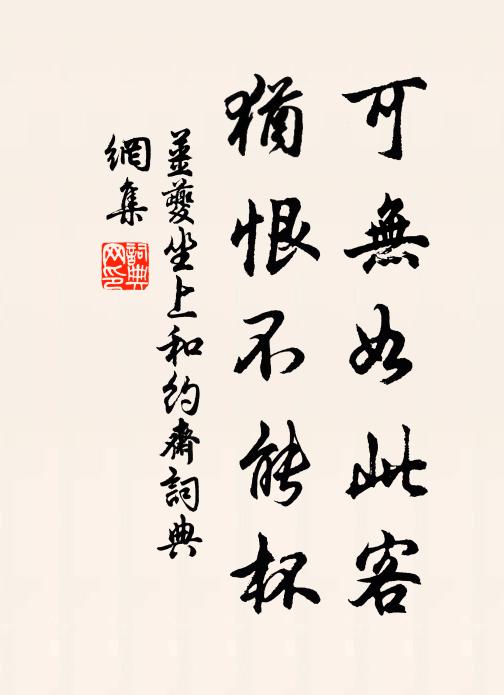 可無如此客
猶恨不能杯
姜夔坐上和約齋詞典
網集
詞典網印